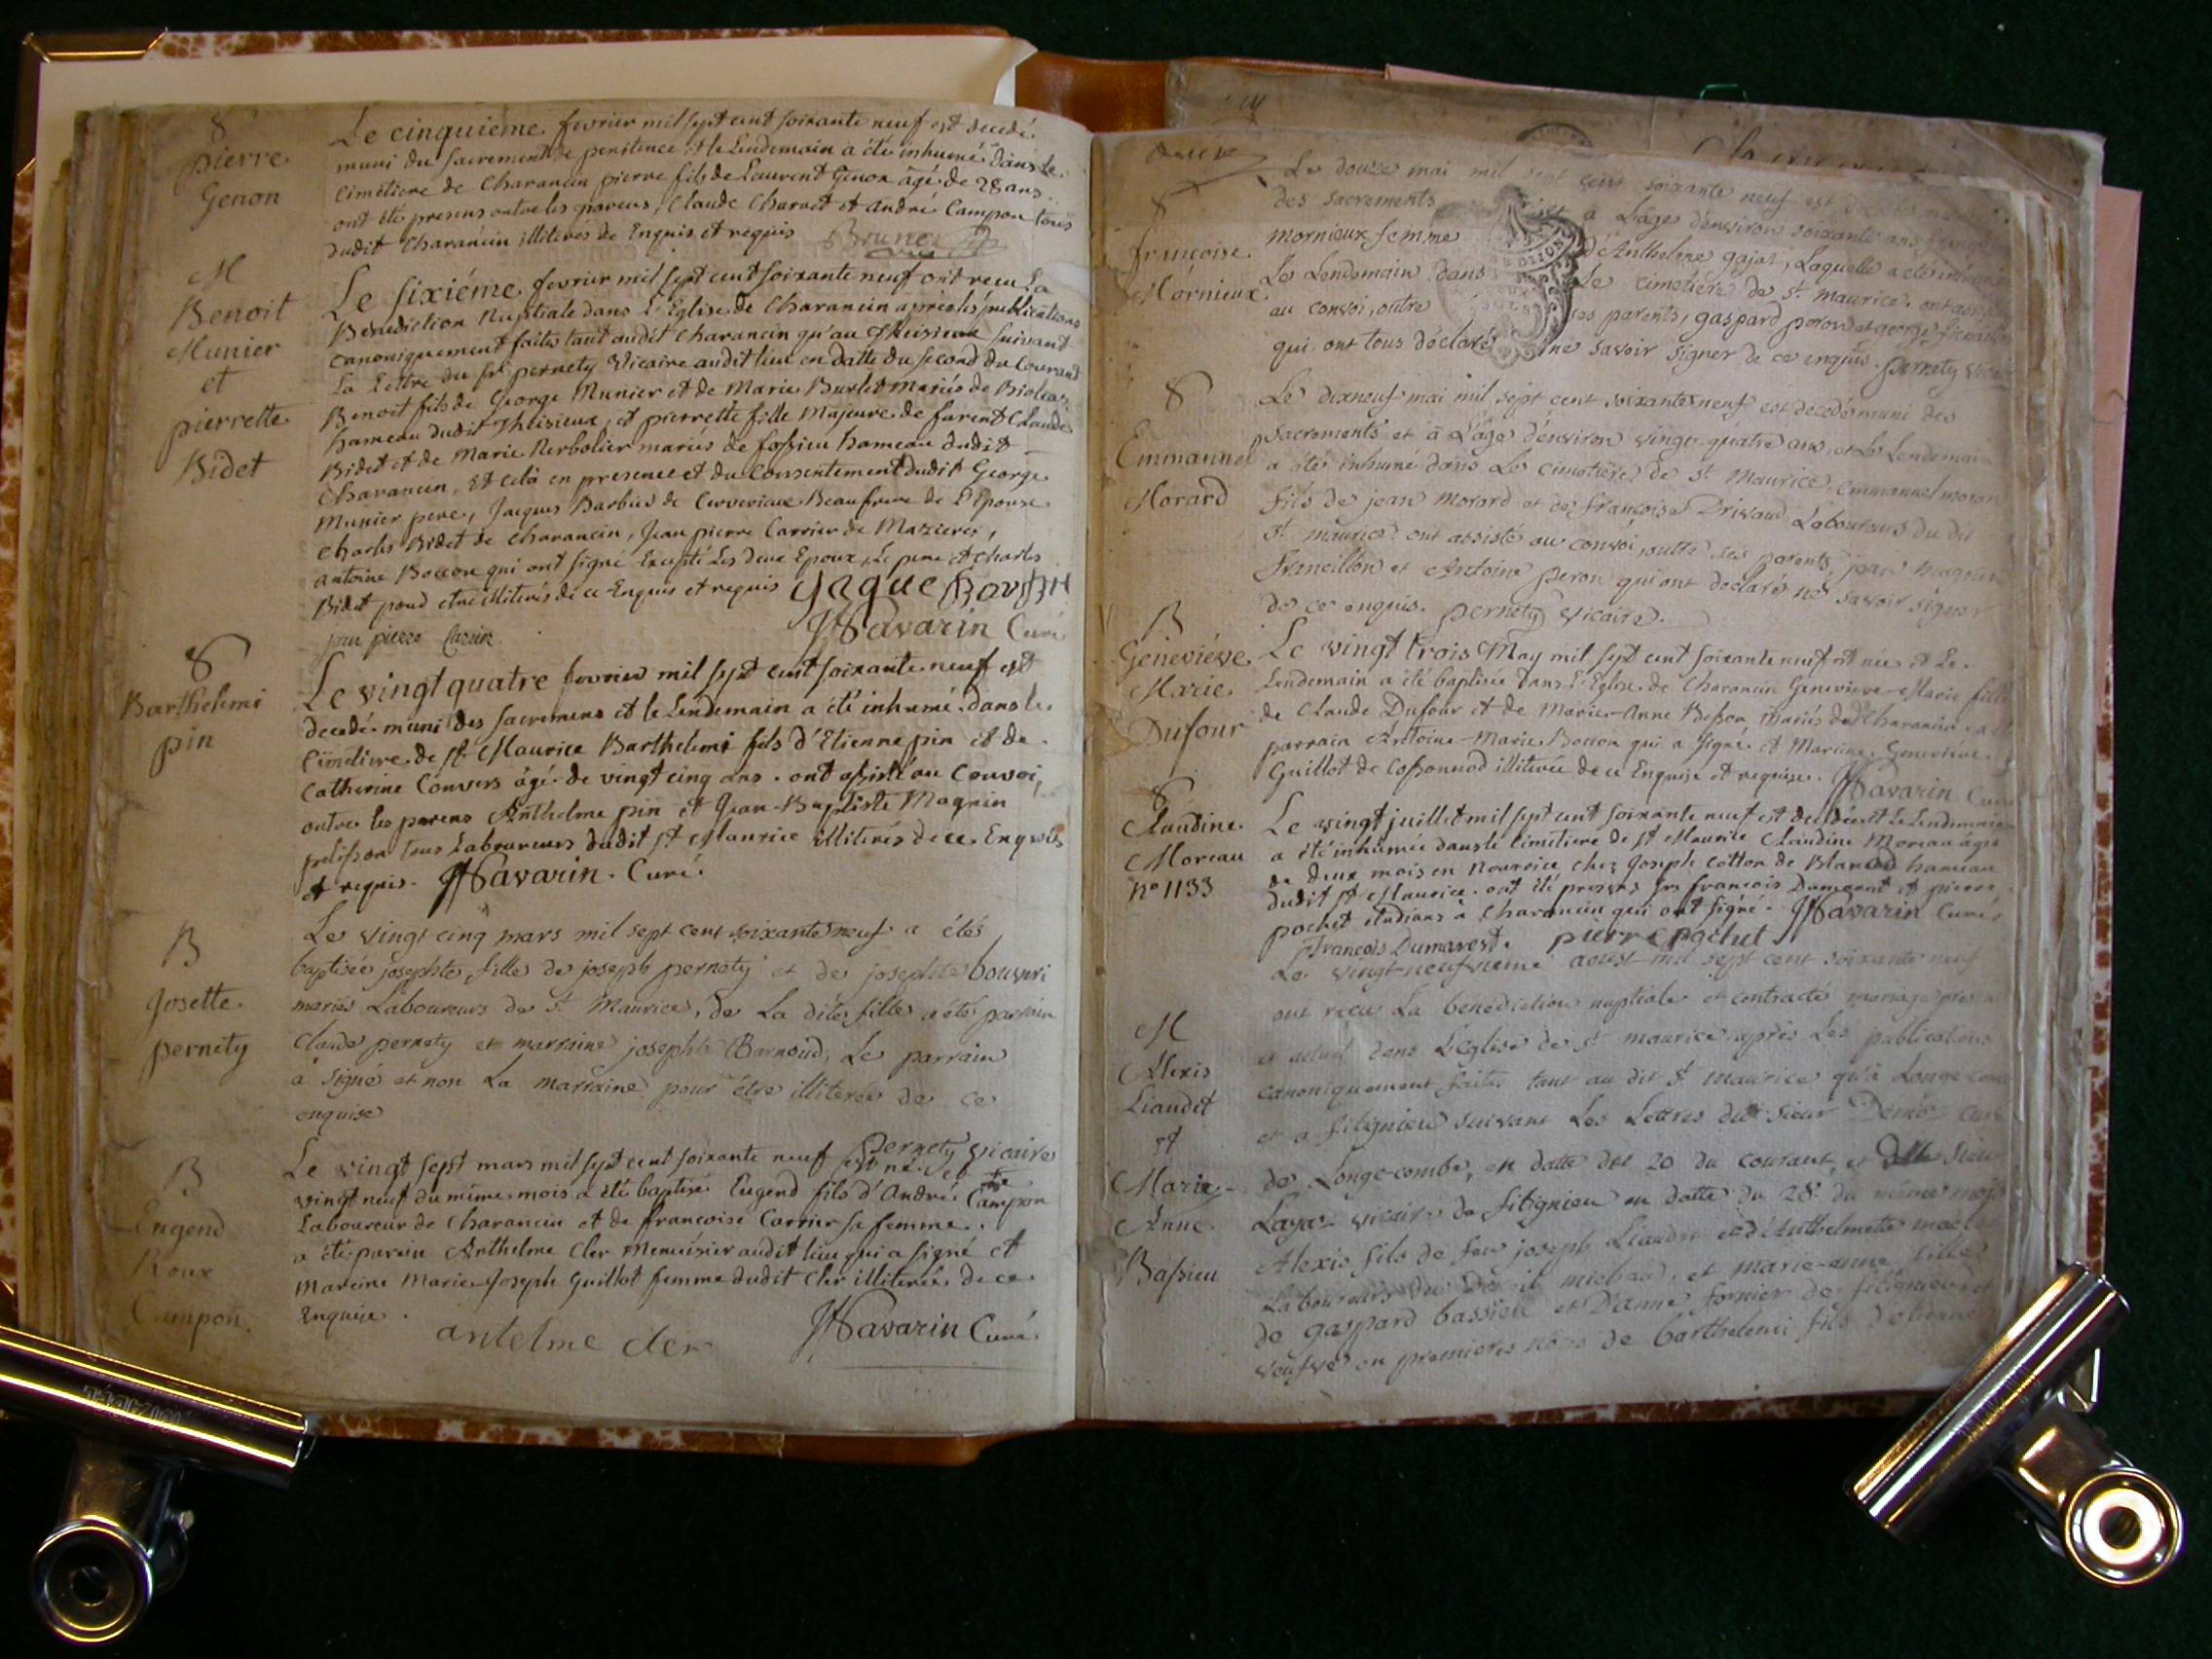 8
pierre
Genon
Le cinquieme fevrier mil sept cent soixante neuf est decedé
muni du sacrement de penitence et le Lendemain a été inhumé dans le
Cimetiere de Charancin pierre fils de Laurent Genon âgé de 28 ans.
ont été presens outre les parens, Claude Charvet et André Campon tous
dudit Charancin illiterés de Enquis et requis
M
Benoit
Munier
et
pierrette
Bidet
Le sixiéme fevrier mil sept cent soixante neuf ont recu La
Benediction Nuptiale dans l'Eglise de Charancin apres les publications
canoniquement faites tant audit Charancin qu'au suivant
La Lettre du Sr pernety Vicaire audit lieu en datte du second du Courant
Benoit fils de George Munier et de Marie Burlet mariés de
hameau dudit et pierrette fille Majeure de furent Claude
Bidet et de Marie Nerbolier mariés de fossieu hameau dudit
Charancin, Et cela en presence et du Consentement dudit George
Munier pere, Jacques Barbier de Beaufrere de L'Epouse
Charles Bidet de Charancin, Jean pierre Carrier de Mazieres,
antoine Bocon qui ont signé Excepté Les deux Epoux, Le pere et Charles
Bidet pour etre illiterés de ce Enquis et requis
jean pierre
JJSavarin Curé
8
Barthelemi
pin
Le vingt quatre fevrier mil sept cent soixante neuf est
decedé muni des sacremens et le Lendemain a été inhumé dans le
Cimetiere de St Maurice Barthelemi fils d'Etienne pin et de
Catherine Convers âgé de vingt cinq ans. ont assisté au Convoi,
outre les parens Anthelme pin et Jean-Baptiste Magnin
pelisson tous Laboureurs dudit St Maurice illiterés de ce Enquis
et requis. JJSavarin. Curé.
B
Josette
pernety
Le vingt cinq mars mil sept cent soixante neuf a été
baptisée josephte fille de joseph pernety et de josephte bouveri
mariés Laboureurs de St Maurice, de La dite fille a été parrain
Claude pernety et marraine josephte Barnoud, Le parrain
a signé et non La marraine pour étre illiterée de ce
enquise
pernety vicaire
B
Eugend
Roux
Campon
Le vingt sept mars mil sept cent soixante neuf est né et le
vingt neuf du même mois a été baptisé Eugend fils d'André Campon
Laboureur de Charancin et de francoise Carrier sa femme.
a été parain Anthelme Cler Menuisier audit lieu qui a signé et
Mareine Marie-Joseph Guillot femme dudit Cler illiterée de ce
Enquise.
antelme cler
JJSavarin Curé
8
françoise
Mornieux
Le douze mai mil sept cent soixante neuf est
des sacrements et a L'âge d'environ soixante ans
mornieux femme d'Anthelme gajat, Laquelle a été
Le Lendemain dans Le cimetiére de St. maurice. ont
au convoi, outre ses parents, gaspard et george
qui ont tous déclaré ne savoir signer de ce enquis. pernety
8
Emmanuel
Morard
Le dixneuf mai mil sept cent soixante neuf est decedé muni des
sacrements et à L'âge d'environ vingt quatre ans, et Le Lendemain
a été inhumé dans Le cimetiére de St Maurice, emmanuel
fils de jean morard et de françoise Drivaud Laboureurs du dit
St maurice ont assisté au convoi, outre ses parents, jean magnin
francillon et Antoine peron qui ont declaré ne savoir signer
de ce enquis. pernety vicaire.
B
Geneviéve
Marie
Dufour
Le vingt trois May mil sept cent soixante neuf est née et Le
Lendemain a été baptisée dans l'Eglise de Charancin Genevieve-Marie fille
de Claude Dufour et de Marie-Anne Besson mariés de Charancin
parrain Antoine-Marie Bocon qui a signé et Mareine Genevieve
Guillot de Cossonnod illiterée de ce Enquise et requise. JJSavarin
8
Claudine
Moreau
no 1133
Le vingt juillet mil sept cent soixante neuf est decedée et Le Lendemain
a été inhumée dans le Cimetiere de St Maurice Claudine Moreau âgée
de deux mois en Nourrice chez Joseph Cotton de hameau
dudit St Maurice. ont été presens francois Dumarest et pierre
pochet etudians à Charancin qui ont signé. JJSavarin Curé
François Dumarest. pierre pochet
M
Alexis
Liaudet
et
Marie-
Anne
Bassieu
Le vingt-neufvieme aoust mil sept cent soixante neuf
ont recu La benediction nuptiale et contracté mariage
et dans L'Eglise de St maurice après Les publications
canoniquement faites tant au dit St maurice qu'à Longe-combe
et a fitignieu suivant Les Lettres du sieur
de Longe-combe, en datte du 20 du courant, et sieur
vicaire de fitignieu en datte du 28. du même mois
Alexis fils de feu joseph Liaudet et d'Anthelmette
Laboureurs du et marie-anne fille
de gaspard bassieu et d'anne fornier de fitignieu
veufve en premieres de barthelemi fils d'etienne